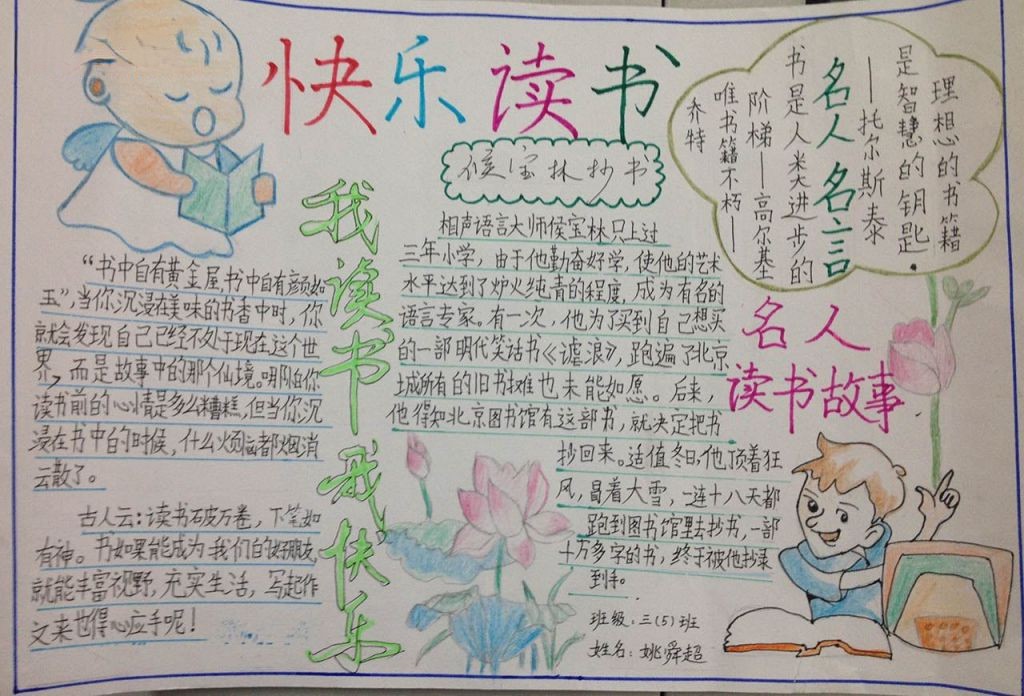 快乐读书
侯宝林抄书
理想的书籍
是智慧的钥匙.
——托尔斯泰
名人名言
书是人类进步的
阶梯——高尔基
唯书籍不朽——
乔特
我读书我快乐
“书中自有黄金屋,书中自有颜如
玉”,当你沉浸在美味的书香中时,你
就会发现自己已经不处于现在这个世
界,而是故事中的那个仙境。哪怕你
读书前的心情是多么糟糕,但当你沉
浸在书中的时候,什么烦恼都烟消
云散了。
古人云:读书破万卷,下笔如
有神。书如果能成为我们的好朋友,
就能丰富视野,充实生活,写起作
文来也得心应手呢!
相声语言大师侯宝林只上过
三年小学,由于他勤奋好学,使他的艺术
水平达到了炉火纯青的程度,成为有名的
语言专家。有一次,他为了买到自己想买
的一部明代笑话书《谑浪》,跑遍了北京
城所有的旧书摊也未能如愿。后来,
他得知北京图书馆有这部书,就决定把书
抄回来。适值冬日,他顶着狂
风,冒着大雪,一连十八天都
跑到图书馆里去抄书,一部
十万多字的书,终于被他抄录
到手。
名人
读书故事
班级:三(5)班
姓名:姚舜超